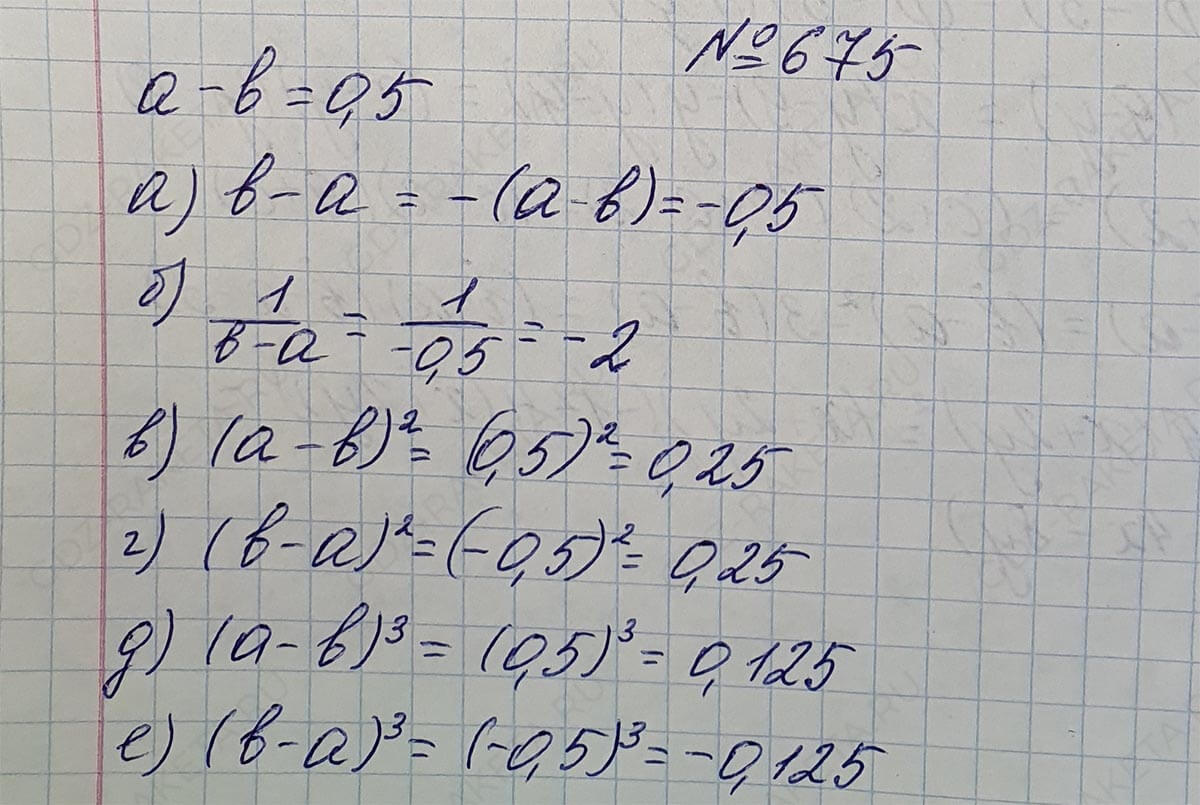 № 675
а - в = 0,5
а) в - а = - (а - в) = - 0,5
б) 1/(в - а) = 1/(-0,5) = - 2
в) (а - в)² = (0,5)² = 0,25
г) (в - а)² = (-0,5)² = 0,25
д) (а - в)³ = (0,5)³ = 0,125
е) (в - а)³ = (-0,5)³ = - 0,125